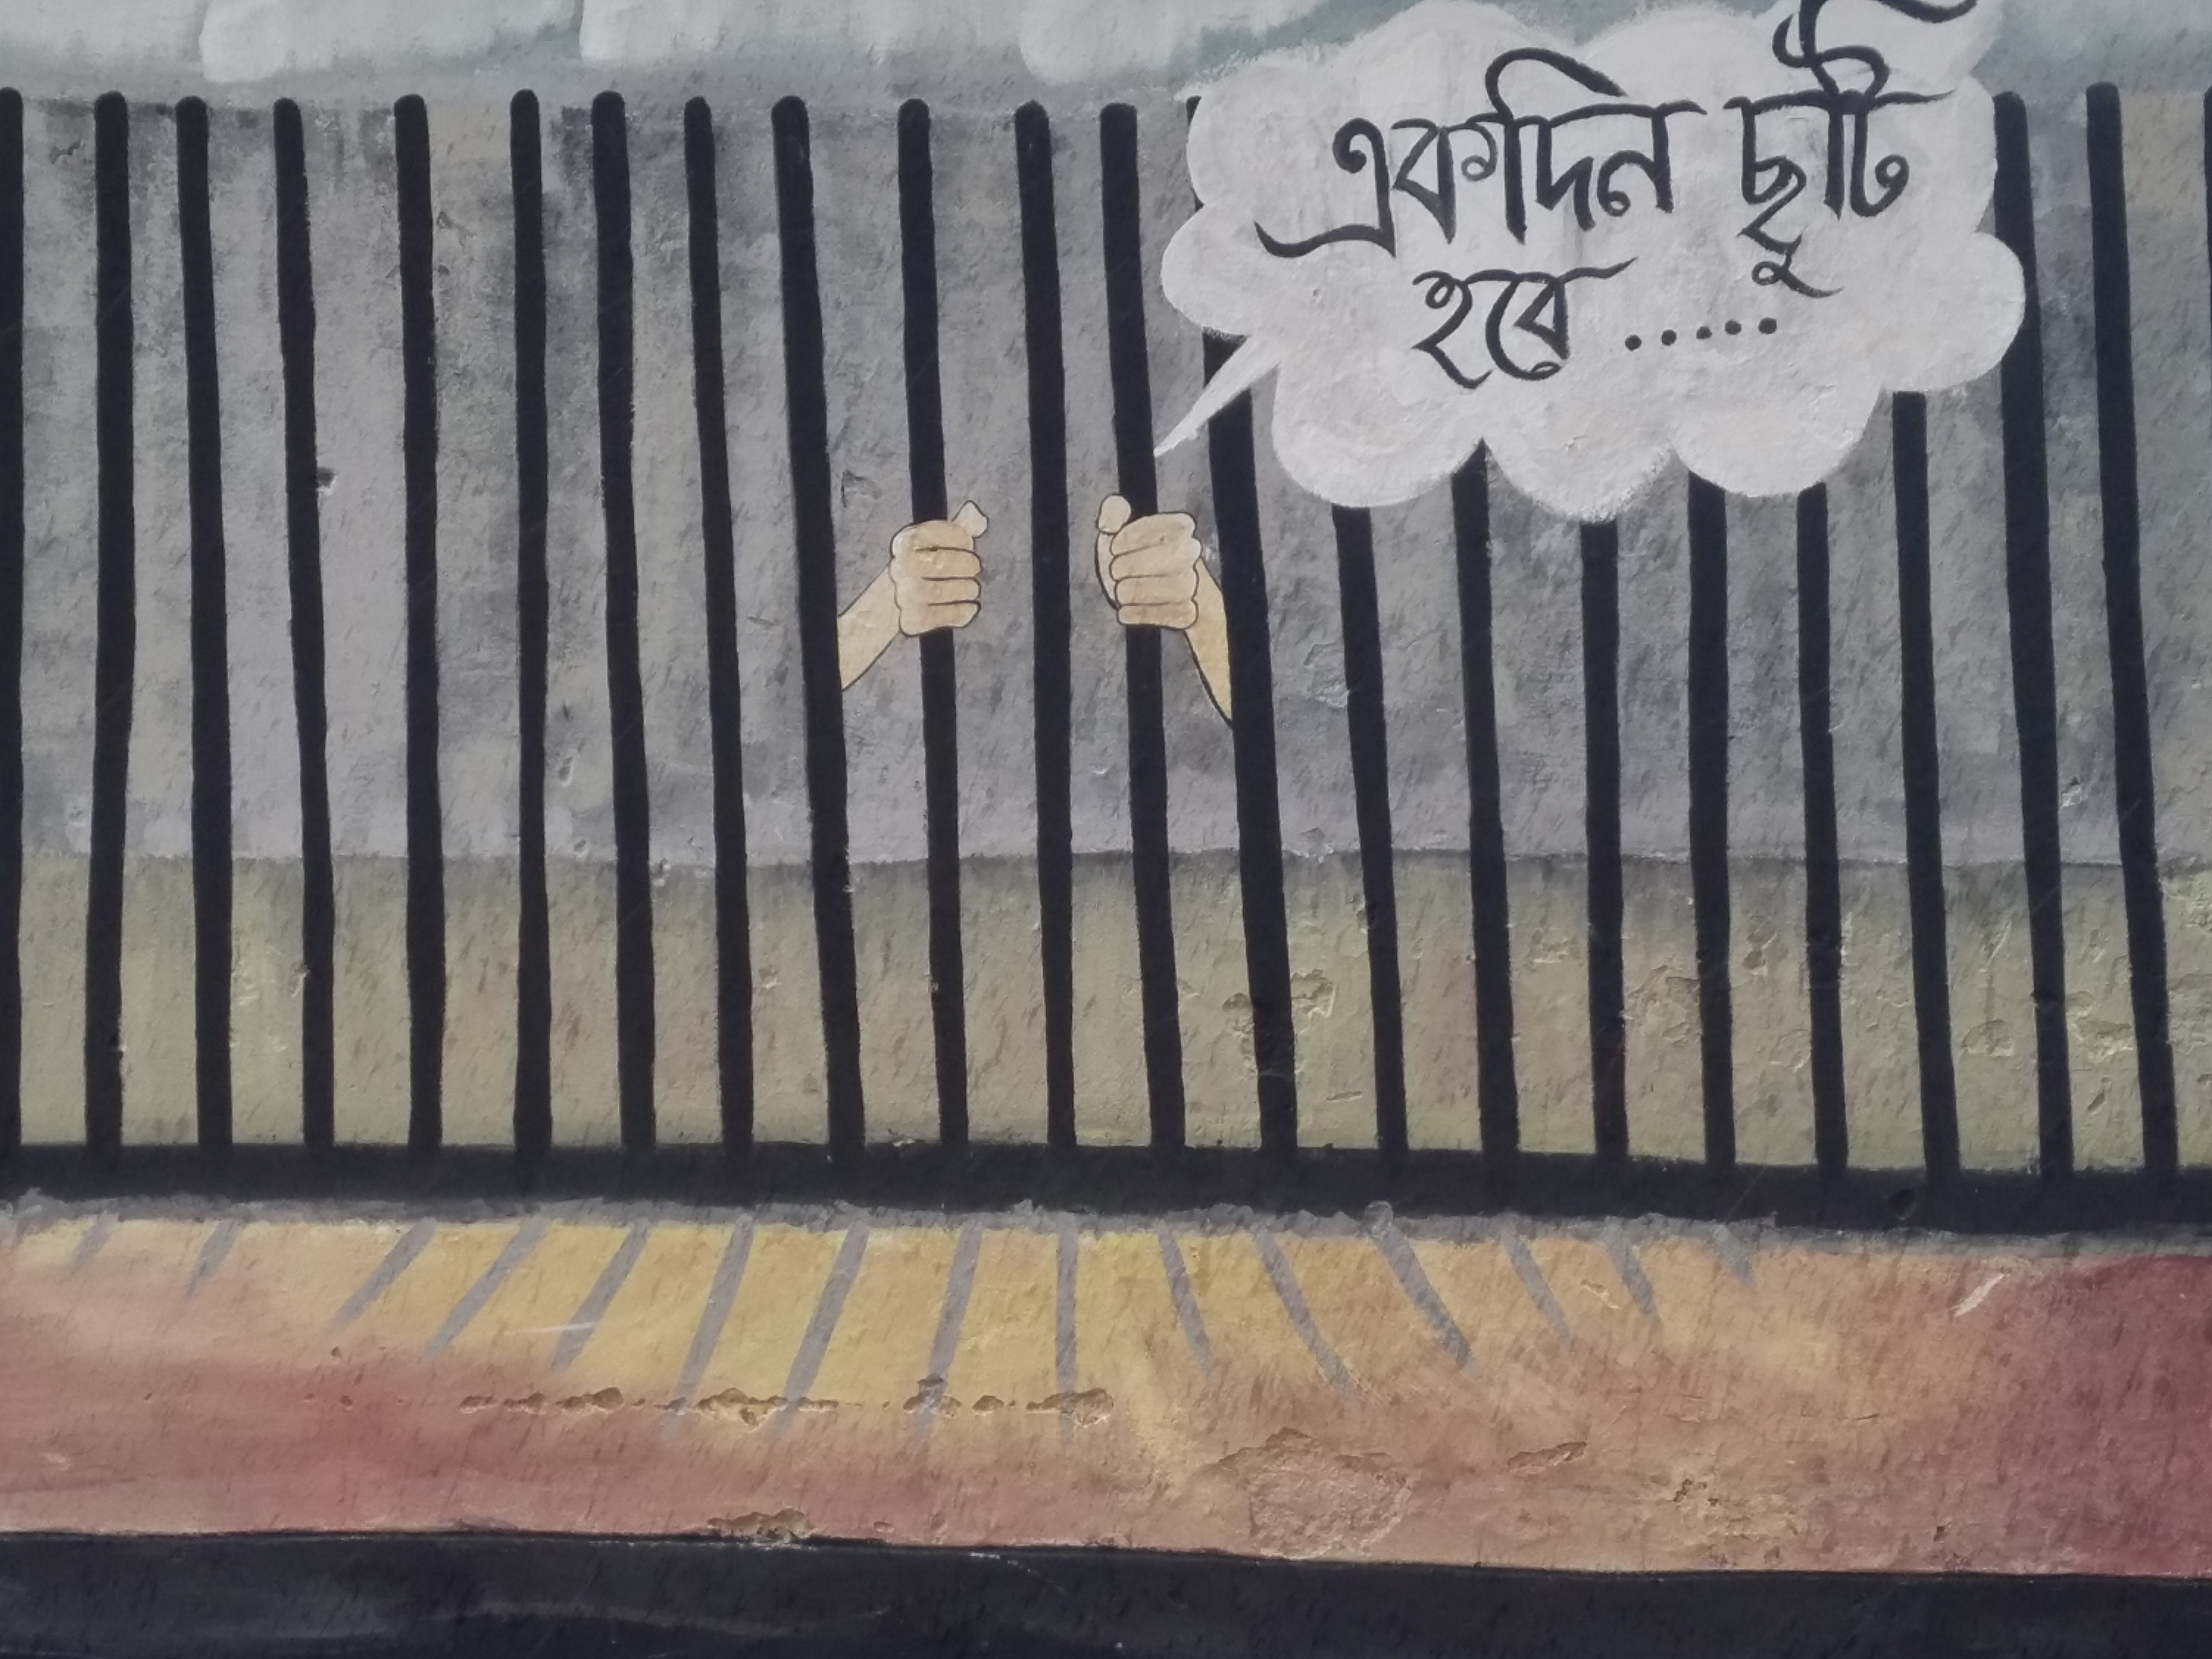 একদিন ছুটি
হবে .....